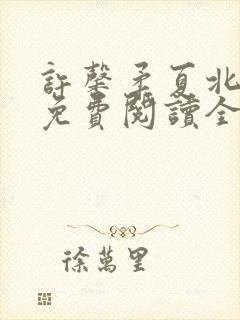 許馨矛夏北
免費閱讀全
徐萬里